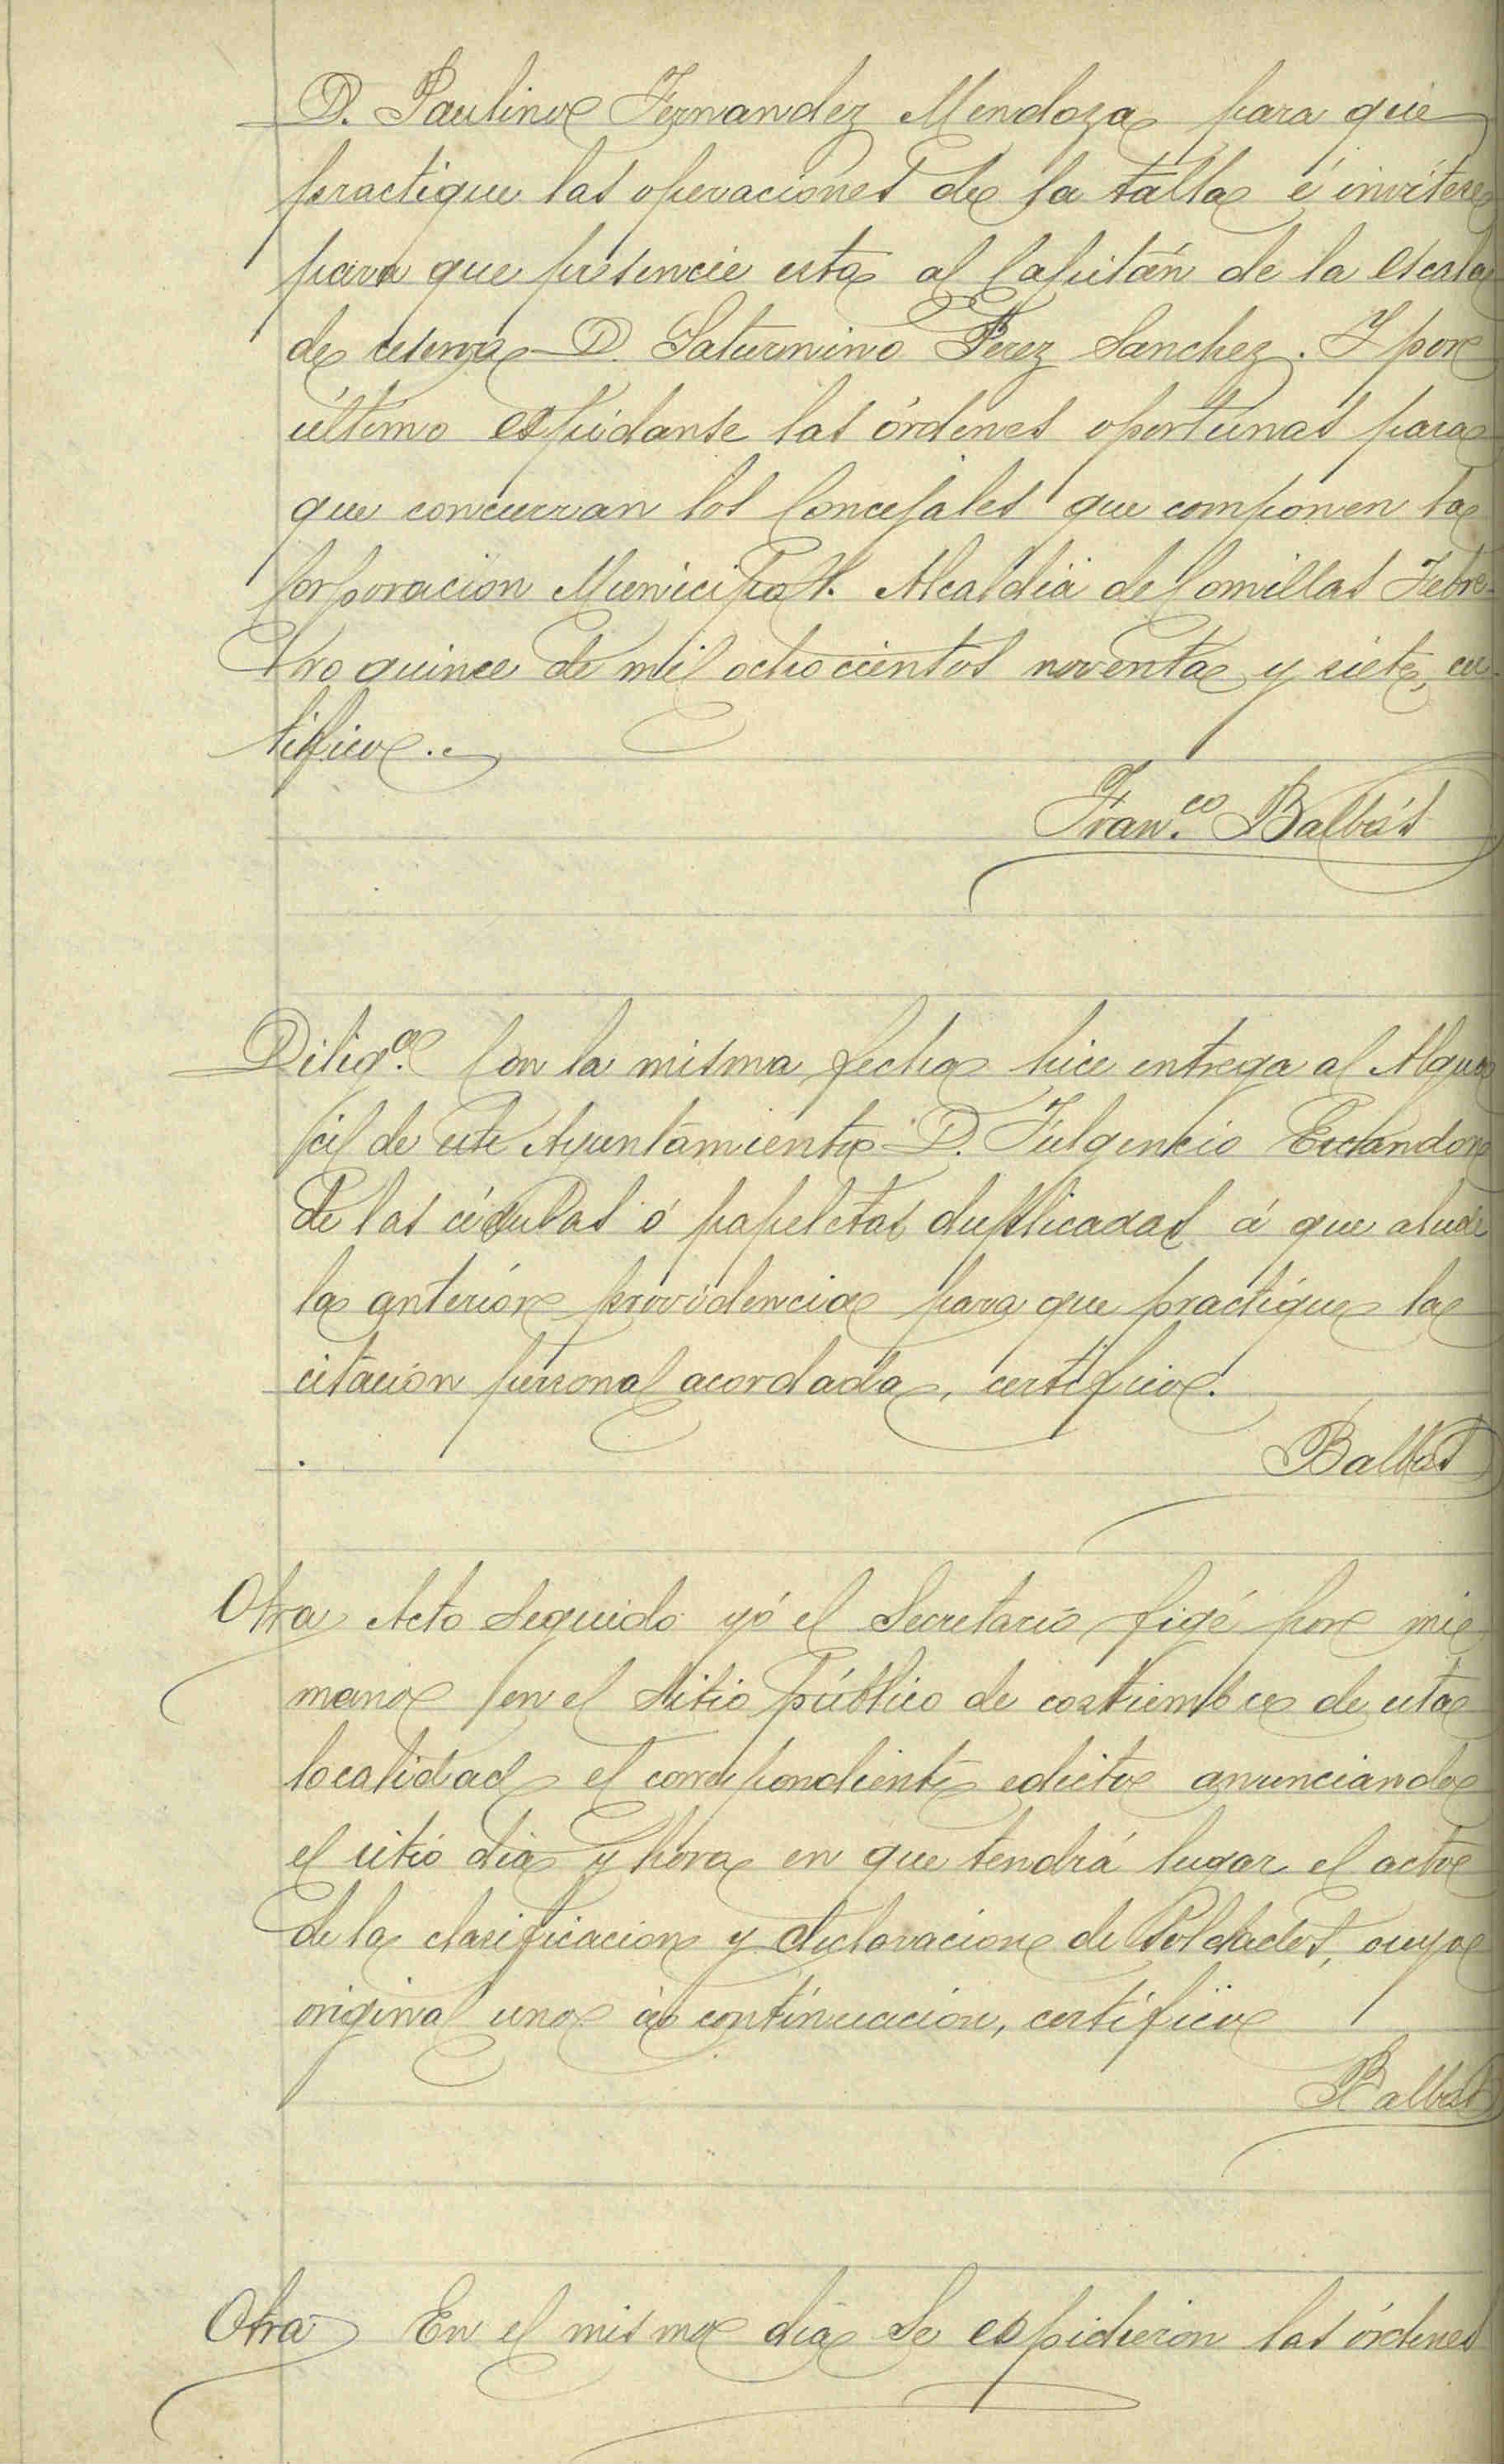 D. Paulino Fernandez Mendoza para que
practique las operaciones de la talla é invítese
para que presencie esta al Capitán de la escala
de reserva D. Saturnino Perez Sanchez. Y por
último espídanse las órdenes oportunas para
que concurran los Concejales que componen la
Corporacion Municipal. Alcaldía de Comillas Febre-
ro quince de mil ochocientos noventa y siete, cer-
tifico.
Fran.co Balbás
Dilig.a Con la misma fecha hice entrega al Algua-
cil de este Ayuntamiento D. Fulgencio Escandon
de las cédulas ó papeletas duplicadas á que alude
la anterior providencia para que practique la
citación personal acordada, certifico.
Balbás
Otra Acto seguido yó el Secretario figé por mi
mano en el sitio público de costumbre de esta
localidad el correspondiente edicto anunciando
el sitio dia y hora en que tendrá lugar el acto
de la clasificacion y declaracion de Soldados, cuyo
original uno á continuacion, certifico
Balbás
Otra En el mismo dia se espidieron las órdenes